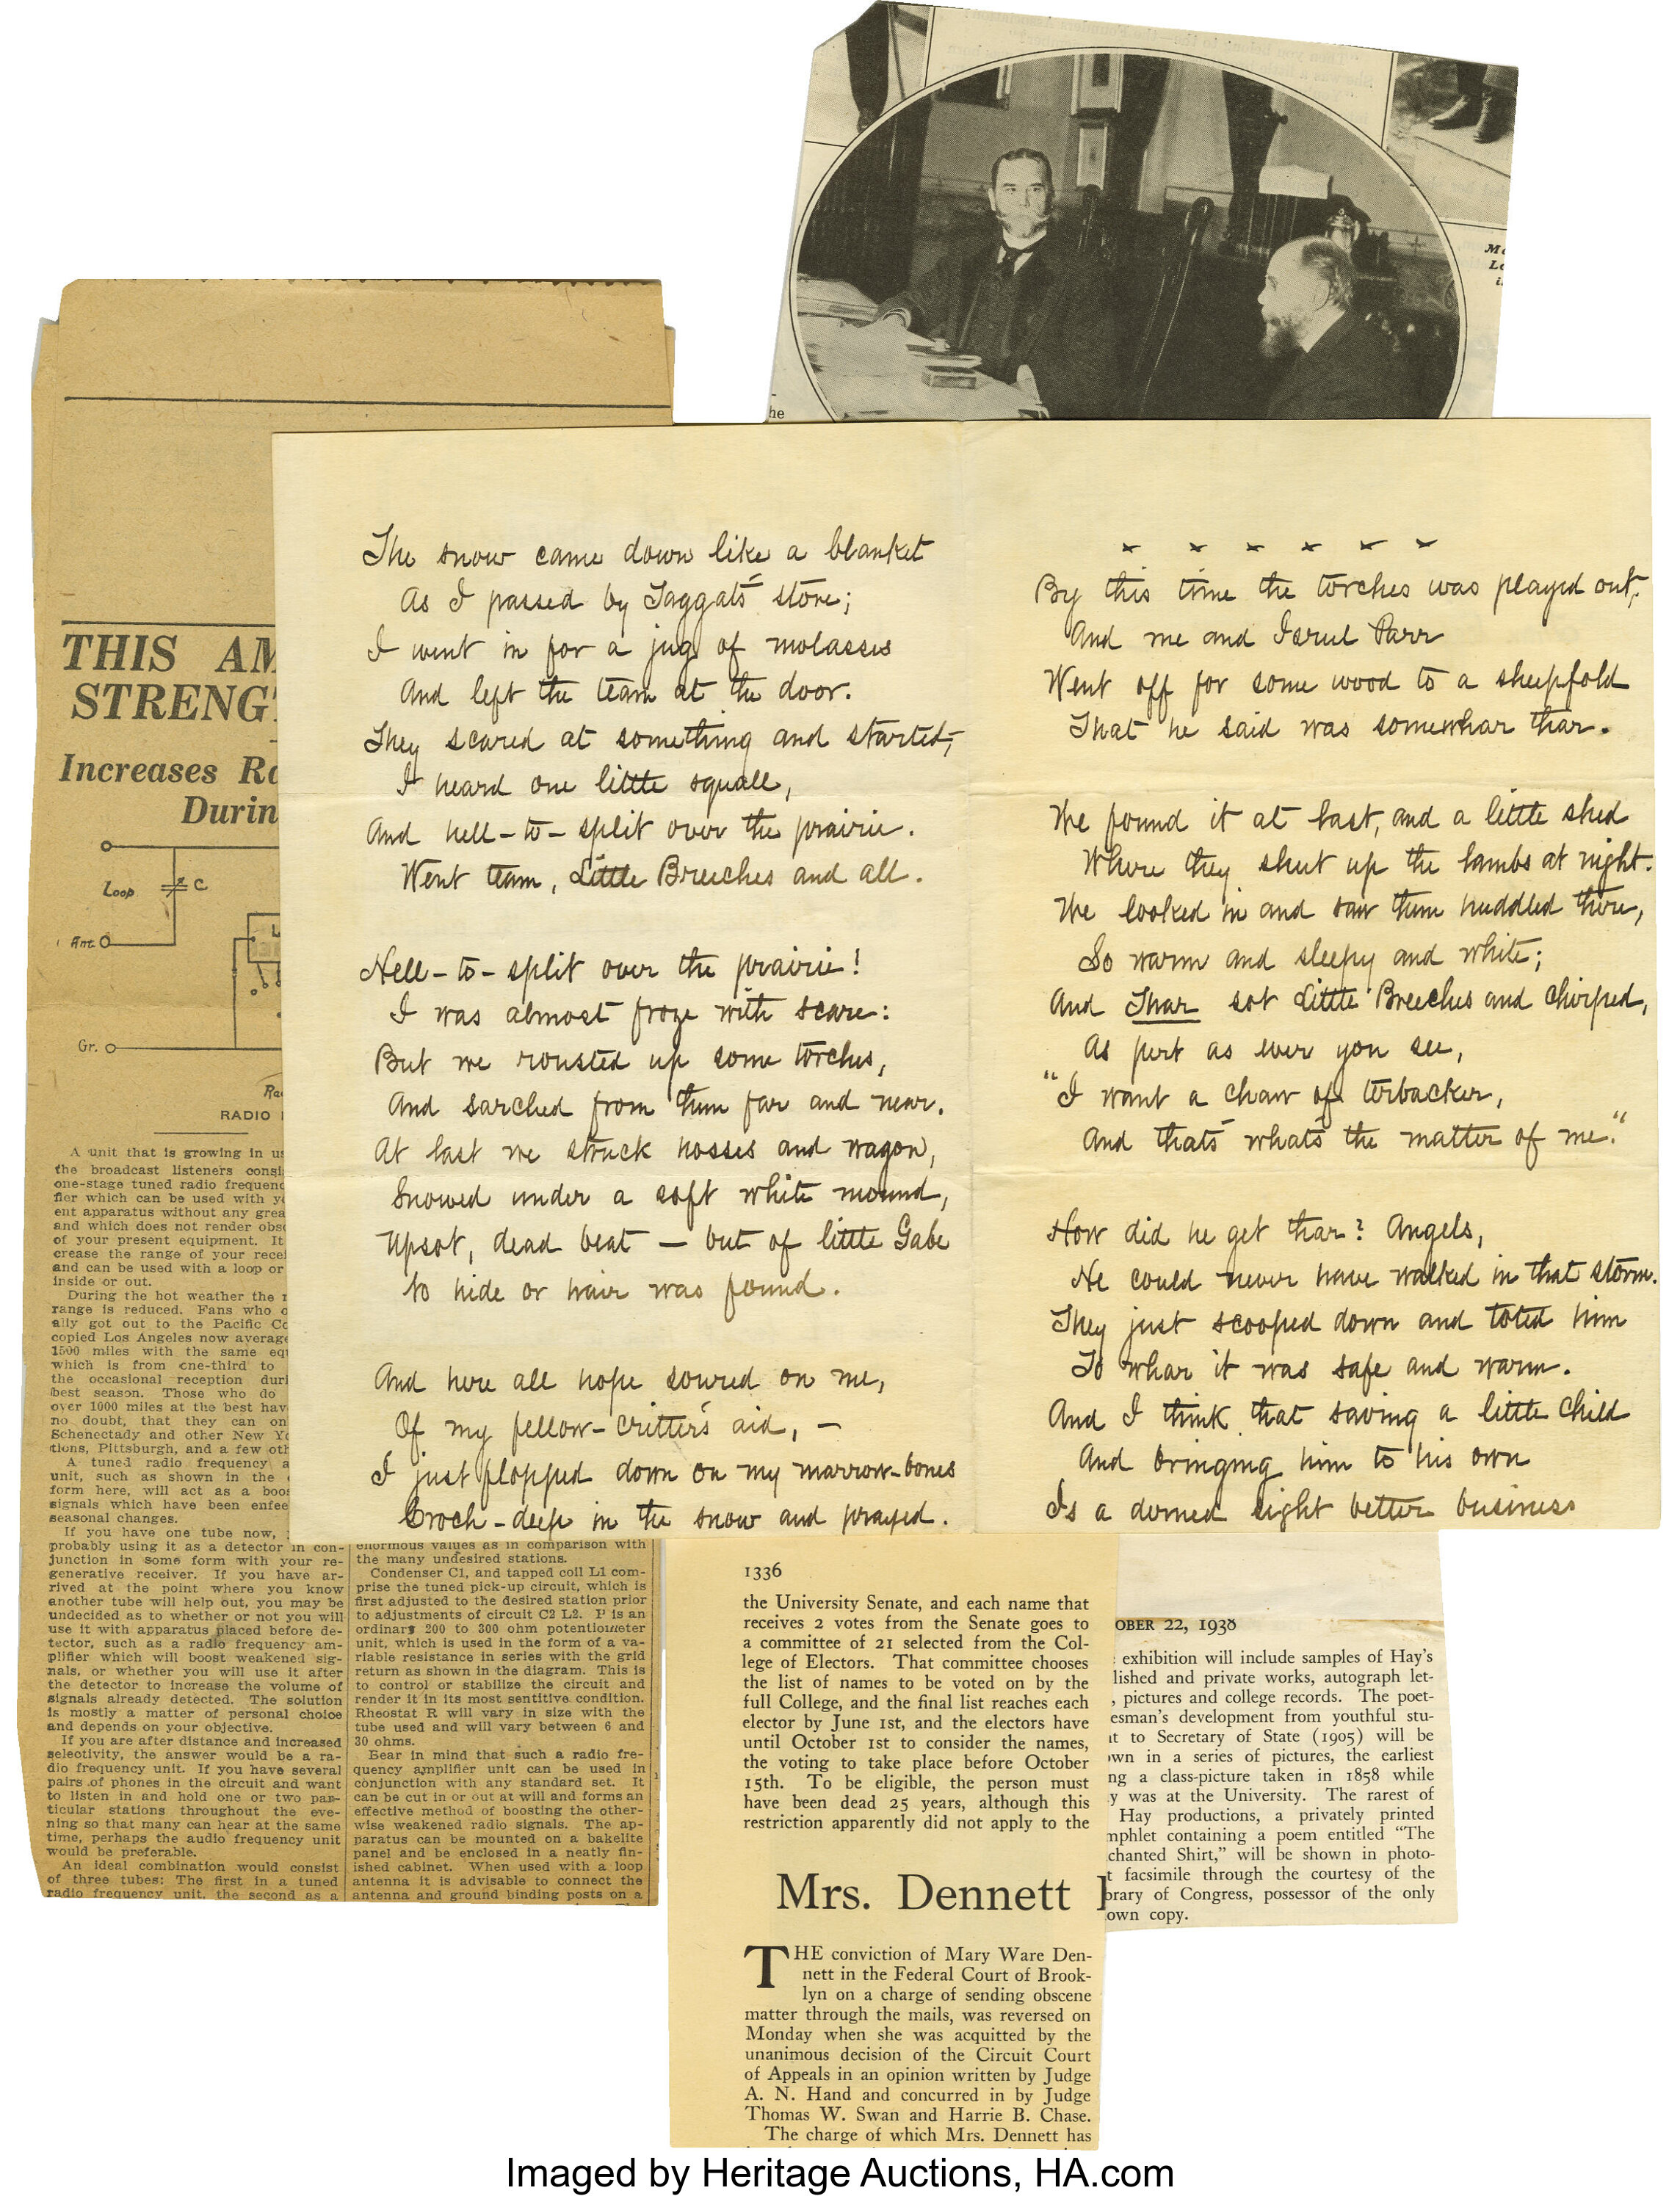 he
THIS AM
STRENGT
Increases Ra
Durin
Loop
C
Ant.
L
Gr.
RADIO
A unit that is growing in us
the broadcast listeners consi
one-stage tuned radio frequenc
fier which can be used with y
ent apparatus without any grea
and which does not render obs
of your present equipment. It
crease the range of your recei
and can be used with a loop or
inside or out.
During the hot weather the r
range is reduced. Fans who o
ally got out to the Pacific Co
copied Los Angeles now average
1500 miles with the same eq
which is from one-third to
the occasional reception duri
best season. Those who do
over 1000 miles at the best hav
no doubt, that they can on
Schenectady and other New Yo
tions, Pittsburgh, and a few oth
A tuned radio frequency a
unit, such as shown in the
form here, will act as a boos
signals which have been enfee
seasonal changes.
If you have one tube now,
probably using it as a detector in con-
junction in some form with your re-
generative receiver. If you have ar-
rived at the point where you know
another tube will help out, you may be
undecided as to whether or not you will
use it with apparatus placed before de-
tector, such as a radio frequency am-
plifier which will boost weakened sig-
nals, or whether you will use it after
the detector to increase the volume of
signals already detected. The solution
is mostly a matter of personal choice
and depends on your objective.
If you are after distance and increased
selectivity, the answer would be a ra-
dio frequency unit. If you have several
pairs of phones in the circuit and want
to listen in and hold one or two par-
ticular stations throughout the eve-
ning so that many can hear at the same
time, perhaps the audio frequency unit
would be preferable.
An ideal combination would consist
of three tubes: The first in a tuned
radio frequency unit, the second as a
enormous values as in comparison with
the many undesired stations.
Condenser C1, and tapped coil L1 com-
prise the tuned pick-up circuit, which is
first adjusted to the desired station prior
to adjustments of circuit C2 L2. P is an
ordinary 200 to 300 ohm potentiometer
unit, which is used in the form of a va-
riable resistance in series with the grid
return as shown in the diagram. This is
to control or stabilize the circuit and
render it in its most sentitive condition.
Rheostat R will vary in size with the
tube used and will vary between 6 and
30 ohms.
Bear in mind that such a radio fre-
quency amplifier unit can be used in
conjunction with any standard set. It
can be cut in or out at will and forms an
effective method of boosting the other-
wise weakened radio signals. The ap-
paratus can be mounted on a bakelite
panel and be enclosed in a neatly fin-
ished cabinet. When used with a loop
antenna it is advisable to connect the
antenna and ground binding posts on a
The snow came down like a blanket
As I passed by Taggat's store;
I went in for a jug of molasses
And left the team at the door.
They scared at something and started,-
I heard one little squall,
And hell-to-split over the prairie.
Went team, Little Breeches and all.
Hell-to-split over the prairie!
I was almost froze with scare:
But we rousted up some torches,
And sarched from them far and near.
At last we struck hosses and wagon,
Snowed under a soft white mound,
Upsot, dead beat — but of little Gabe
No hide or hair was found.
And here all hope soured on me,
Of my fellow-critter's aid, —
I just flopped down on my marrow-bones
Croch-deep in the snow and prayed.
x x x x x x
By this time the torches was played out,
And me and Isrul Parr
Went off for some wood to a sheepfold
That he said was somewhar thar.
We found it at last, and a little shed
Where they shut up the lambs at night.
We looked in and saw them huddled thar,
So warm and sleepy and white;
And Thar sot Little Breeches and chirped,
As pert as ever you see,
"I want a chaw of terbacker,
And that's what's the matter of me."
How did he get thar? Angels,
He could never have walked in that storm.
They just scooped down and toted him
To whar it was safe and warm.
And I think that saving a little child
And bringing him to his own
Is a derned sight better business
1336
the University Senate, and each name that
receives 2 votes from the Senate goes to
a committee of 21 selected from the Col-
lege of Electors. That committee chooses
the list of names to be voted on by the
full College, and the final list reaches each
elector by June 1st, and the electors have
until October 1st to consider the names,
the voting to take place before October
15th. To be eligible, the person must
have been dead 25 years, although this
restriction apparently did not apply to the
Mrs. Dennett
THE conviction of Mary Ware Den-
nett in the Federal Court of Brook-
lyn on a charge of sending obscene
matter through the mails, was reversed on
Monday when she was acquitted by the
unanimous decision of the Circuit Court
of Appeals in an opinion written by Judge
A. N. Hand and concurred in by Judge
Thomas W. Swan and Harrie B. Chase.
The charge of which Mrs. Dennett has
OBER 22, 1938
exhibition will include samples of Hay's
lished and private works, autograph let-
, pictures and college records. The poet-
esman's development from youthful stu-
t to Secretary of State (1905) will be
wn in a series of pictures, the earliest
ng a class-picture taken in 1858 while
y was at the University. The rarest of
Hay productions, a privately printed
mphlet containing a poem entitled "The
chanted Shirt," will be shown in photo-
t facsimile through the courtesy of the
brary of Congress, possessor of the only
own copy.
Imaged by Heritage Auctions, HA.com